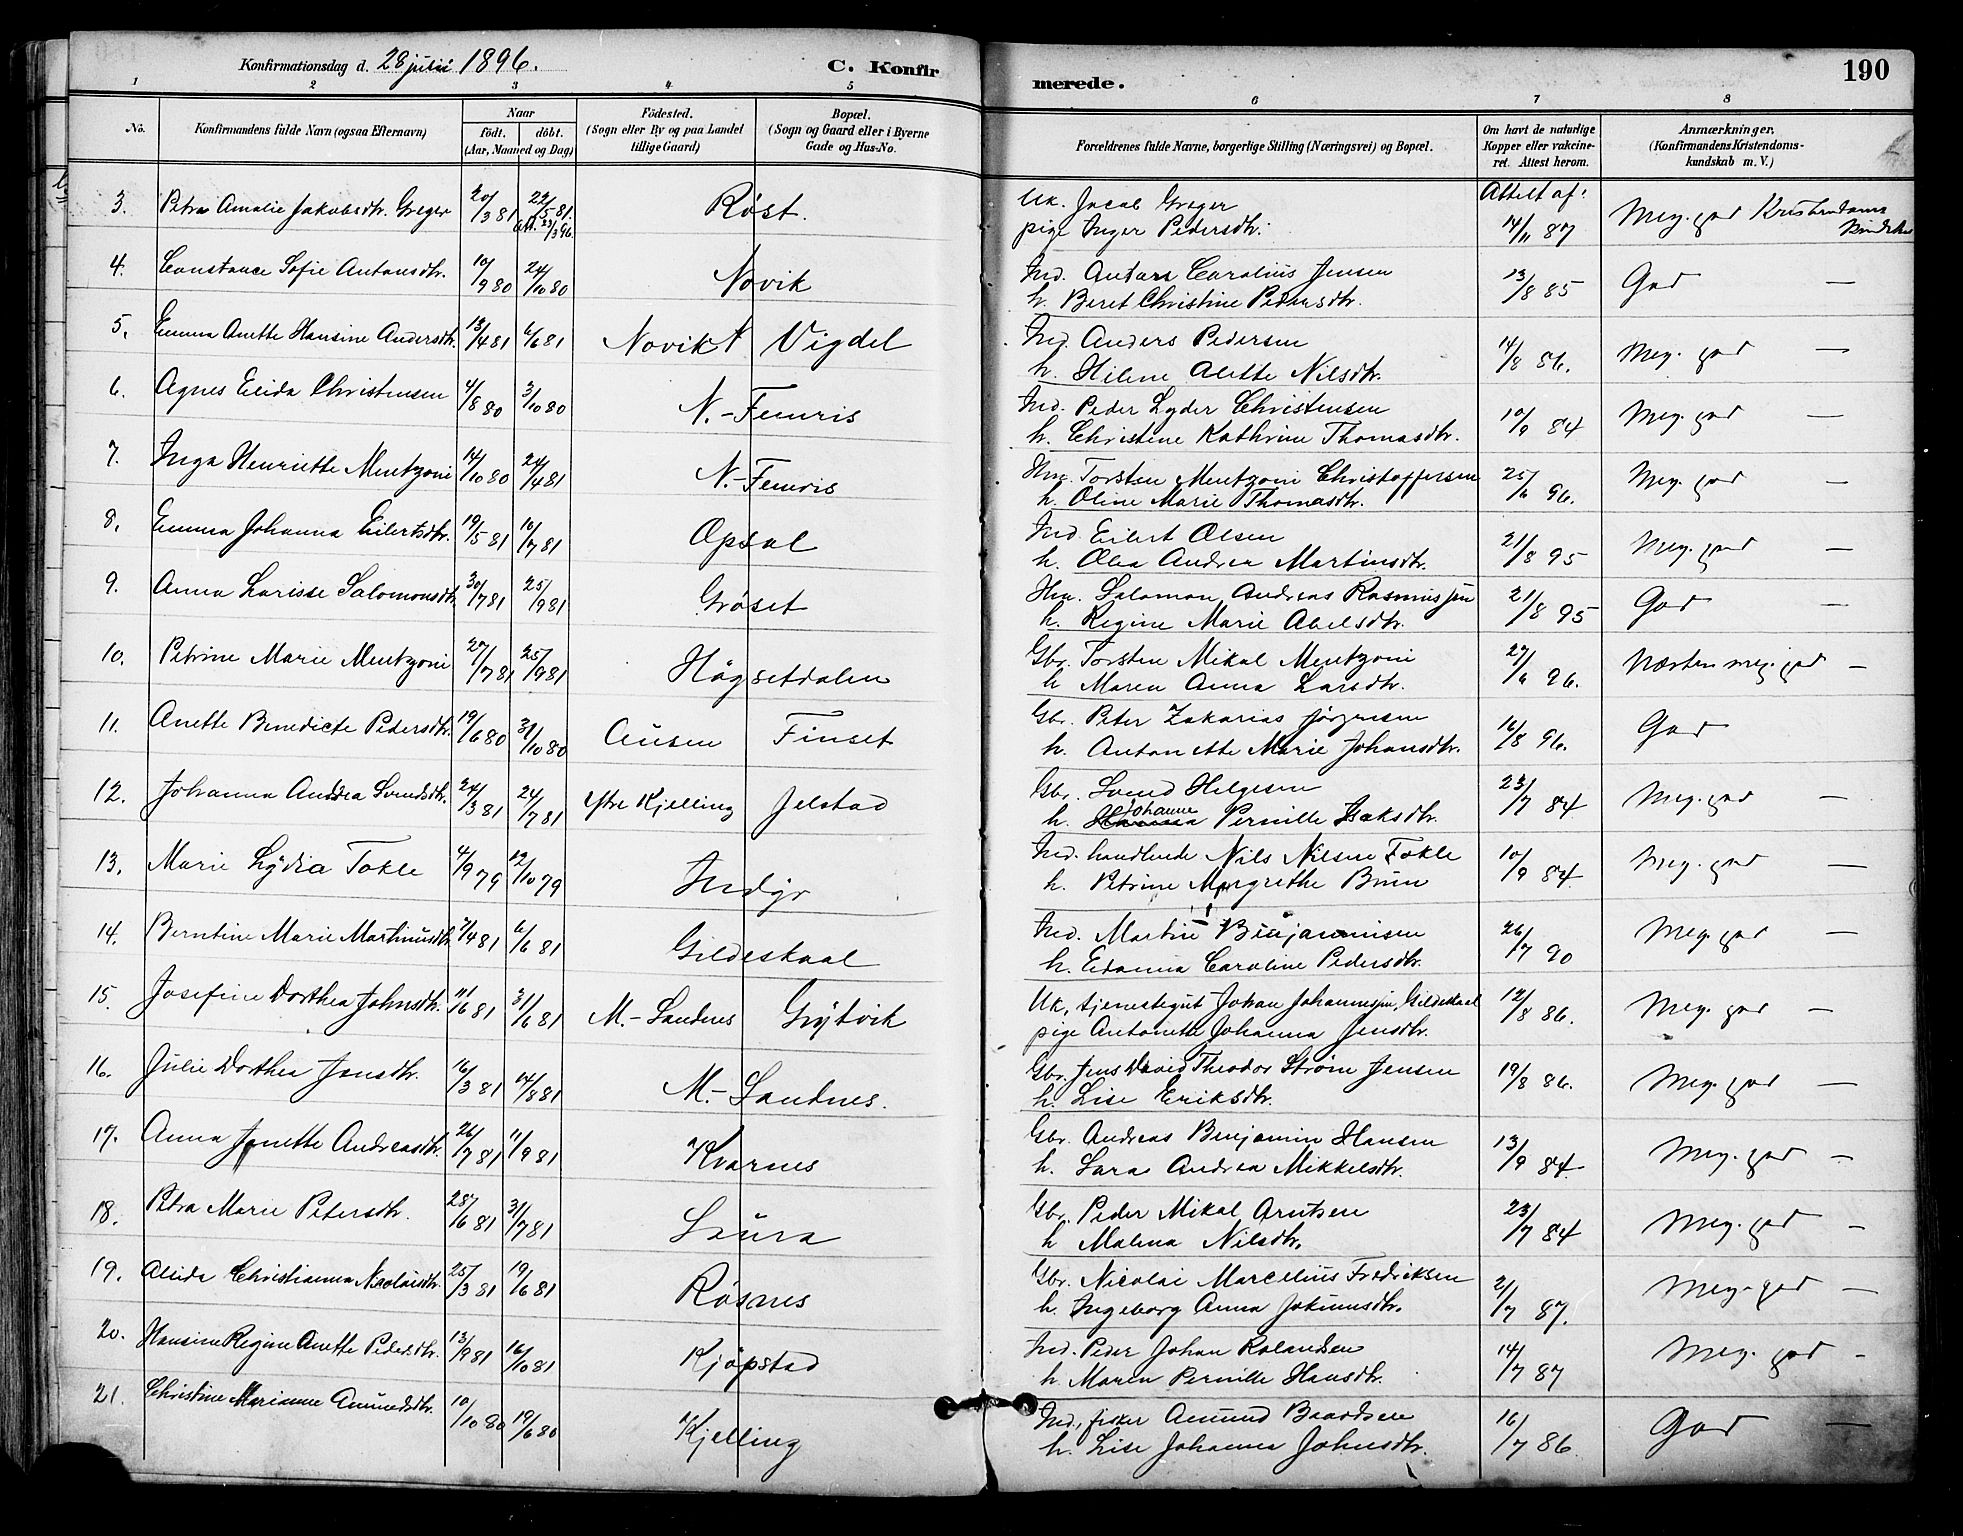 Konfirmationsdag d. 28 juni 1896. C. Konfir
merede. 190
1 2 3 4 5 6 7 8
No. Konfirmandens fulde Navn (ogsaa Efternavn) Naar født. døbt. (Aar, Maaned og Dag) Fødested. (Sogn eller By og paa Landet tillige Gaard) Bopæl. (Sogn og Gaard eller i Byerne Gade og Hus-No.
Forældrenes fulde Navne, borgerlige Stilling (Næringsvei) og Bopæl. Om havt de naturlige Kopper eller vakcineret. Attest herom. Anmærkninger. (Konfirmandens Kristendomskundskab m. V.)
3. Petra Amalie Jakobsdtr. Greger 20/3 81 22/5 81. Røst. Uk. Jacob Greger Attest af:
pige Inger Pedersdtr. 14/11 87 Meg. god Kristendoms
4. Constance Sofie Antonsdtr. 10/9 80 24/10 80 Novik Ind. Antons Carolius Jensen 13/8 85 God —
h. Beret Christine Pedersdtr.
5. Emma Anette Hansine Andersdtr. 13/4 81 6/6 81 Novik N Vigdel Ind. Anders Pedersen 14/8 86. Meg. god —
h. Hilene Alette Nilsdtr.
6. Agnes Elida Christensen 4/8 80 3/10 80 N.-Femris Ind. Peder Lyder Christensen 10/9 84 Meg. god —
h. Christine Kathrine Thomasdtr.
7. Inga Henriette Mentzoni 14/10 80 24/4 81 N.-Femris Hm. Torsten Mentzoni Christoffersen 25/6 96. Meg. god —
h. Oline Marie Thomasdtr.
8. Emma Johanna Eilertsdtr. 19/5 81 10/7 81 Opsal Ind. Eilert Olsen 21/8 95 Meg. god —
h. Olea Andrea Martinsdtr.
9. Anna Larisse Salomonsdtr. 30/7 81 25/9 81 Grøset Hm. Salomon Andreas Rasmussen 21/8 95 God —
h. Regine Marie Abelsdtr.
10. Petrine Marie Mentzoni 27/7 81 25/9 81 Høgsetdalen Gbr. Torsten Mikal Mentzoni 27/6 96. Næsten meg. god —
h Maren Anna Larsdtr.
11. Anette Benedicte Pedersdtr. 19/6 80 31/10 80 Ausen Finset Gbr. Peter Zakarias Jørgensen 16/8 96. God
h. Antonette Marie Johansdtr.
12. Johanna Andrea Svendsdtr. 24/3 81 24/7 81 Ytre Kjelling Jelstad Gbr. Svend Helgesen 23/7 84 Meg. god —
h. Johanne Pernille Isaksdtr.
13. Marie Lydia Tokle 4/9 79 12/10 79 Indyr Ind. handlende Nils Nilsen Tokle 10/9 84. Meg. god —
h. Petrine Margrethe Bruun
14. Berntine Marie Martinusdtr. 7/4 81 6/6 81 Gildeskaal Ind. Martin Benjaminsen 26/7 90 Meg. god —
h. Edanna Caroline Pedersdtr.
15. Josefine Dorthea Johnsdtr. 11/6 81 31/6 81 M.-Sandnes Grytvik Uk, tjenestegut Johan Johannessen, Gildeskaal 12/8 86. Meg. god —
pige Antonette Johanna Jensdtr.
16. Julie Dorthea Jensdtr. 16/3 81 14/8 81 M.-Sandnes. Gbr. Jens David Theodor Strøm Jensen 19/8 86. Meg. god —
h. Lise Eriksdtr.
17. Anna Jonette Andreasdtr. 26/7 81 11/9 81 Kvarnes Gbr. Andreas Benjamin Hansen 13/9 84 Meg. god —
h. Sara Andrea Mikkelsdtr.
18. Petra Marie Petersdtr. 28/6 81 31/7 81 Saura Gbr. Peder Mikal Arntsen 23/7 84 Meg. god —
h Malena Nilsdtr.
19. Alida Christianna Nicolaisdtr. 25/3 81 19/6 81 Røsnes Gbr. Nicolai Marcelius Fredriksen 2/7 87. Meg. god —
h. Ingeborg Anna Jokumsdtr.
20. Hansine Regine Anette Pedersdtr. 13/9 81 16/10 81 Kjøpstad Ind. Peder Johan Rolandsen 14/7 87 Meg. god —
h. Maren Pernille Hansdtr.
21. Christine Marianne Amundsdtr. 10/10 80 19/6 80 Kjelling Ind., fisker Amund Baardsen 16/7 86 God —
h. Lise Johanna Johnsdtr.